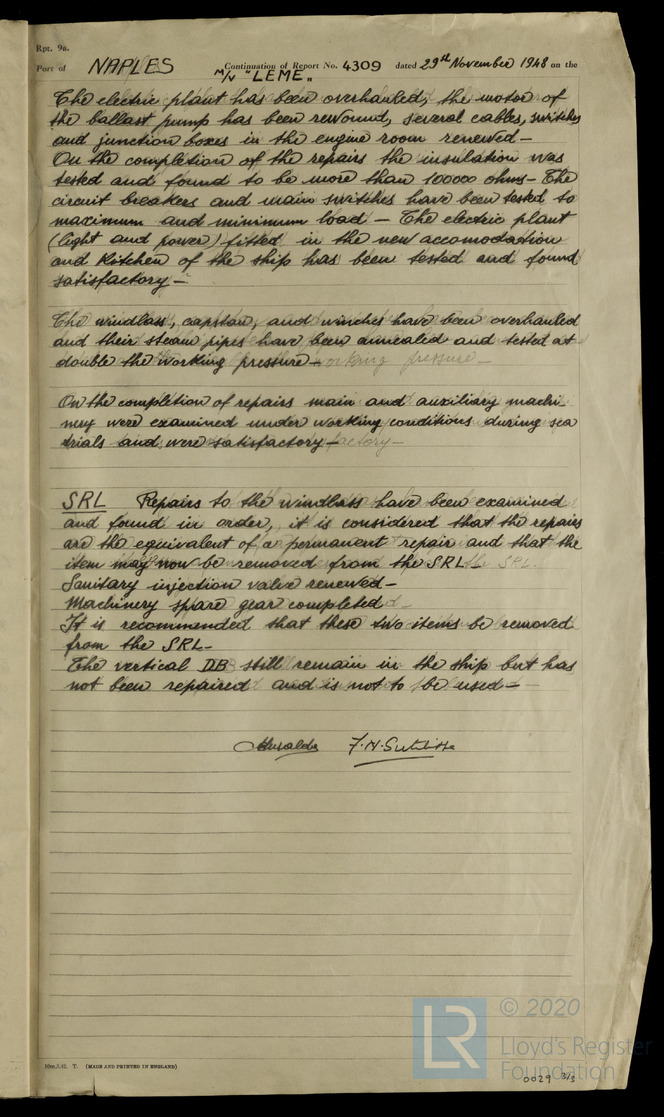 Rpt. 9a.
Port of NAPLES Continuation of Report No. 4309 dated 29th November 1948 on the
M/V "LEME"
The electric plant has been overhauled, the motor of
the ballast pump has been rewound, several cables, switches
and junction boxes in the engine room renewed—
On the completion of the repairs the insulation was
tested and found to be more than 100000 ohms— The
circuit breakers and main switches have been tested to
maximum and minimum load — The electric plant
(light and power) fitted in the new accomodation
and Kitchen of the ship has been tested and found
satisfactory—
The windlass, capstan, and winches have been overhauled
and their steam pipes have been annealed and tested at
double the working pressure—
On the completion of repairs main and auxiliary machi-
nery were examined under working conditions during sea
trials and were satisfactory—
SRL Repairs to the windlass have been examined
and found in order, it is considered that the repairs
are the equivalent of a permanent repair and that the
item may now be removed from the SRL—
Sanitary injection valve renewed—
Machinery spare gear completed
It is recommended that these two items be removed
from the SRL—
The vertical DB still remain in the ship but has
not been repaired and is not to be used—
F.H. Sutcliffe
10m.5.45. T. (MADE AND PRINTED IN ENGLAND)
LR
© 2020
Lloyd's Register
Foundation
0029 3/3